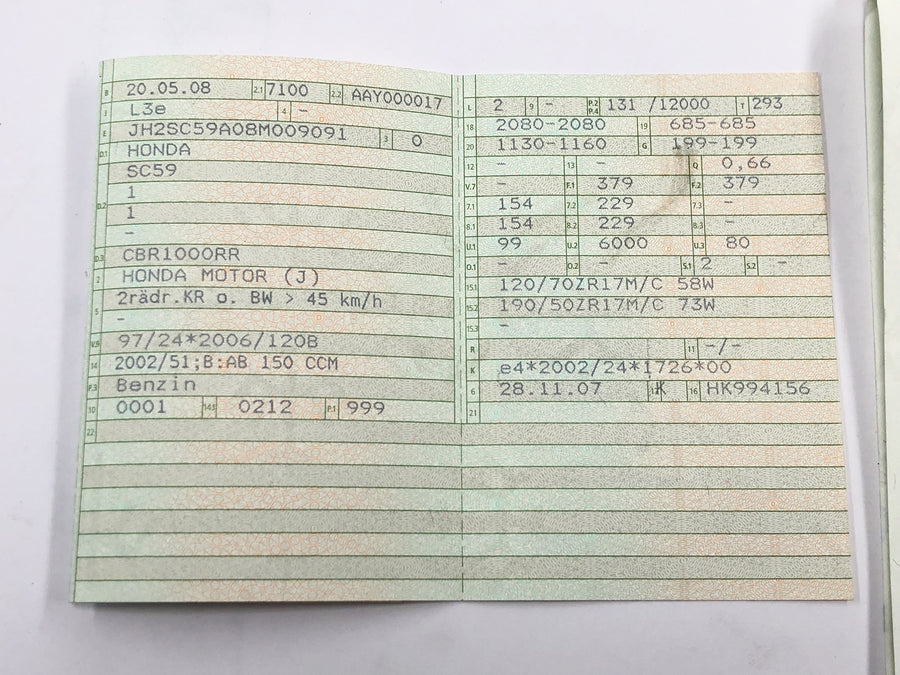 B 20.05.08 2.1 7100 2.2 AAY000017
J L3e 4 -
E JH2SC59A08M009091 3 0
D.1 HONDA
D.2 SC59
1
1
-
D.3 CBR1000RR
2 HONDA MOTOR (J)
5 2rädr.KR o. BW > 45 km/h
-
V.9 97/24*2006/120B
14 2002/51;B:AB 150 CCM
P.3 Benzin
10 0001 14.1 0212 P.1 999
22
L 2 9 - P.2 P.4 131 /12000 T 293
18 2080-2080 19 685-685
20 1130-1160 G 199-199
12 - 13 - Q 0,66
V.7 - F.1 379 F.2 379
7.1 154 7.2 229 7.3 -
8.1 154 8.2 229 8.3 -
U.1 99 U.2 6000 U.3 80
O.1 - O.2 - S.1 2 S.2 -
15.1 120/70ZR17M/C 58W
15.2 190/50ZR17M/C 73W
15.3 -
R 11 -/-
K e4*2002/24*1726*00
6 28.11.07 17 K 16 HK994156
21